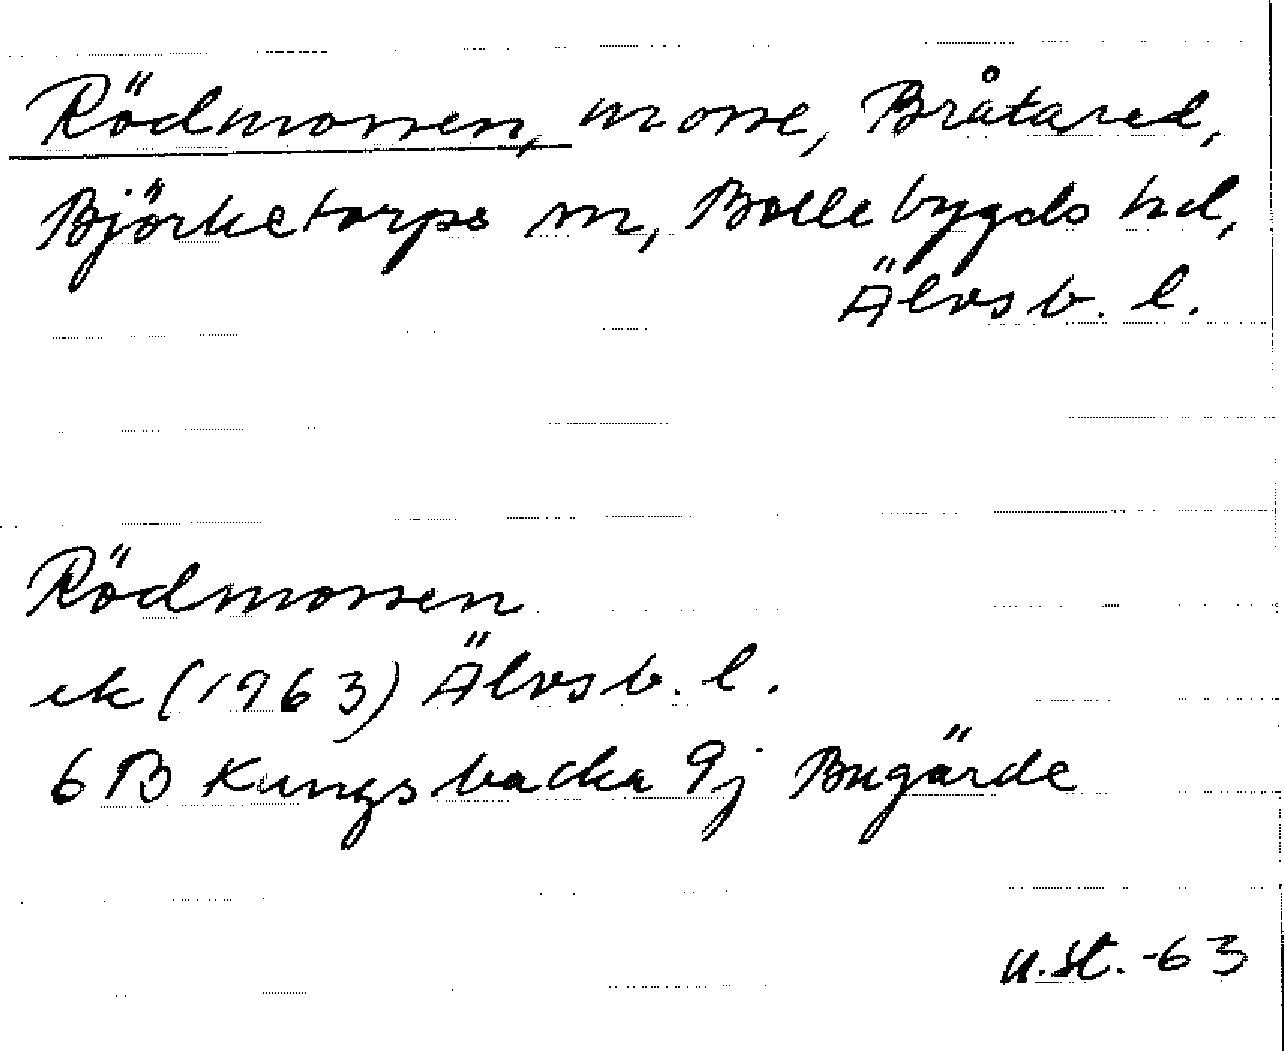 Rödmossen, mosse, Bråtared,
Björketorps sn, Bollebygds hd,
Älvsb. l.
Rödmossen
ek (1963) Älvsb. l.
6 B Kungsbacka 9j Bugärde
U.St. -63